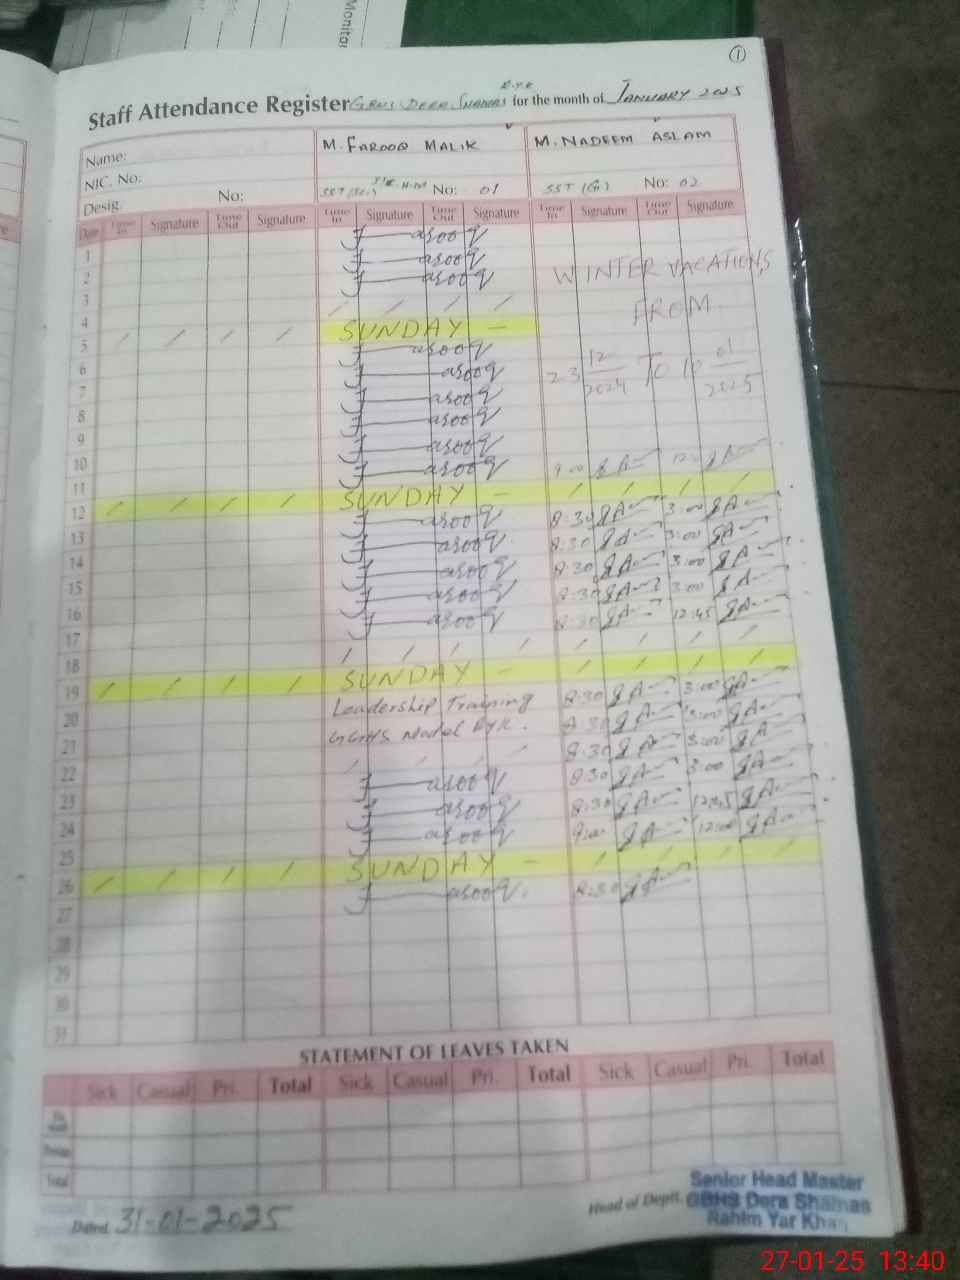 Monitor
1
R.Y.K
Staff Attendance Register GBHS DERA SHAMAS for the month of JANUARY 2025
Name: M. FAROOQ MALIK M. NADEEM ASLAM
NIC. No:
Desig. No: SST (Sc.) No: 01 SST (G) No: 02
Date Time In Signature Time Out Signature Time In Signature Time Out Signature Time In Signature Time Out Signature
1 Farooq
2 Farooq WINTER VACATIONS
3 Farooq
4 / / / / FROM
5 / / / / SUNDAY —
6 Farooq 23 12/2024 TO 10 01/2025
7 Farooq
8 Farooq
9 Farooq
10 Farooq
11 Farooq 9:00
12 / / / / SUNDAY — / / / /
13 Farooq 8:30 3:00
14 Farooq 8:30 3:00
15 Farooq 8:30 3:00
16 Farooq 8:30 3:00
17 Farooq 8:30 12:45
18 / / / / / / / /
19 / / / / SUNDAY — / / / /
20 Leadership Training 8:30 3:00
21 GGHS Model RYK. 8:30 3:00
22 / / / / 8:30 3:00
23 Farooq 8:30 3:00
24 Farooq 8:30 12:45
25 Farooq 9:00 12:00
26 / / / / SUNDAY — / / / /
27 Farooq 8:30
28
29
30
31
STATEMENT OF LEAVES TAKEN
Sick Casual Pri. Total Sick Casual Pri. Total Sick Casual Pri. Total
Total
Dated 31-01-2025 Head of Deptt.
Senior Head Master
GBHS Dera Shamas
Rahim Yar Khan
27-01-25 13:40